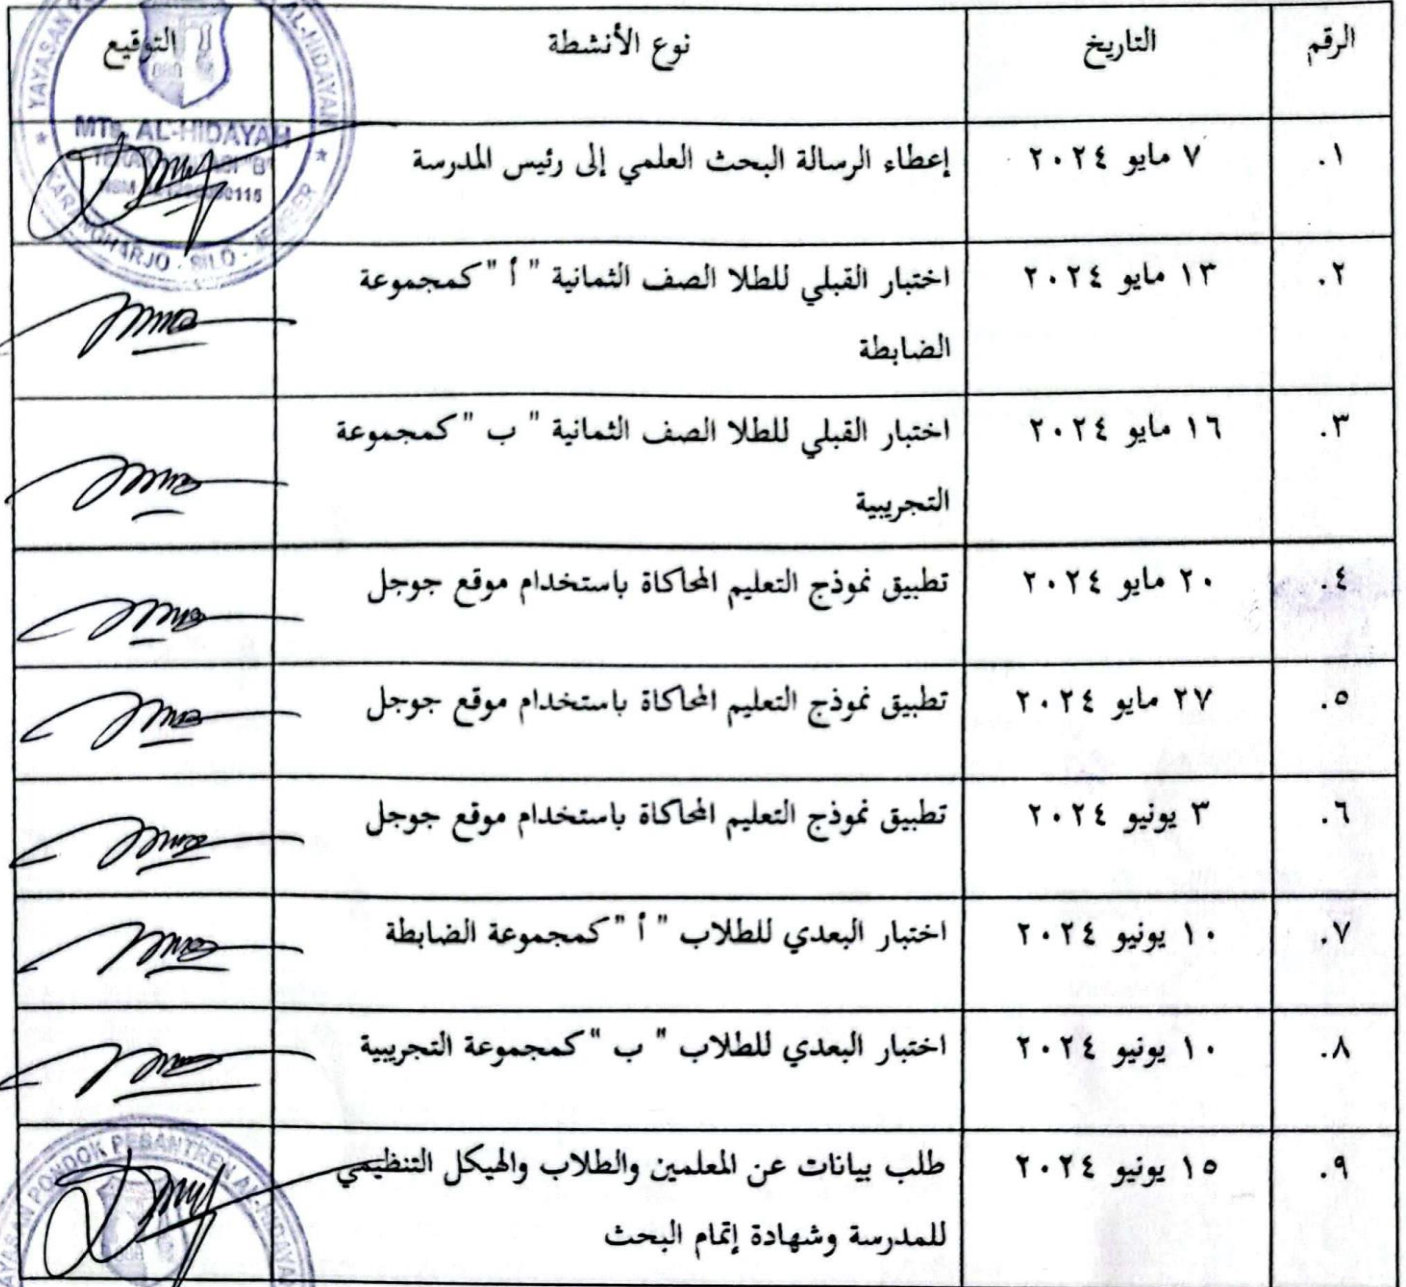 الرقم التاريخ نوع الأنشطة التوقيع
١. ٧ مايو ٢٠٢٤ إعطاء الرسالة البحث العلمي إلى رئيس المدرسة
٢. ١٣ مايو ٢٠٢٤ اختبار القبلي للطلا الصف الثمانية " أ " كمجموعة
الضابطة
٣. ١٦ مايو ٢٠٢٤ اختبار القبلي للطلا الصف الثمانية " ب " كمجموعة
التجريبية
٤. ٢٠ مايو ٢٠٢٤ تطبيق نموذج التعليم المحاكاة باستخدام موقع جوجل
٥. ٢٧ مايو ٢٠٢٤ تطبيق نموذج التعليم المحاكاة باستخدام موقع جوجل
٦. ٣ يونيو ٢٠٢٤ تطبيق نموذج التعليم المحاكاة باستخدام موقع جوجل
٧. ١٠ يونيو ٢٠٢٤ اختبار البعدي للطلاب " أ " كمجموعة الضابطة
٨. ١٠ يونيو ٢٠٢٤ اختبار البعدي للطلاب " ب " كمجموعة التجريبية
٩. ١٥ يونيو ٢٠٢٤ طلب بيانات عن المعلمين والطلاب والهيكل التنظيمي
للمدرسة وشهادة إتمام البحث
YAYASAN AL-HIDAYAH
MTs. AL-HIDAYAH
KARANGHARJO - SILO - JEMBER
YAYASAN PONDOK PESANTREN AL-HIDAYAH